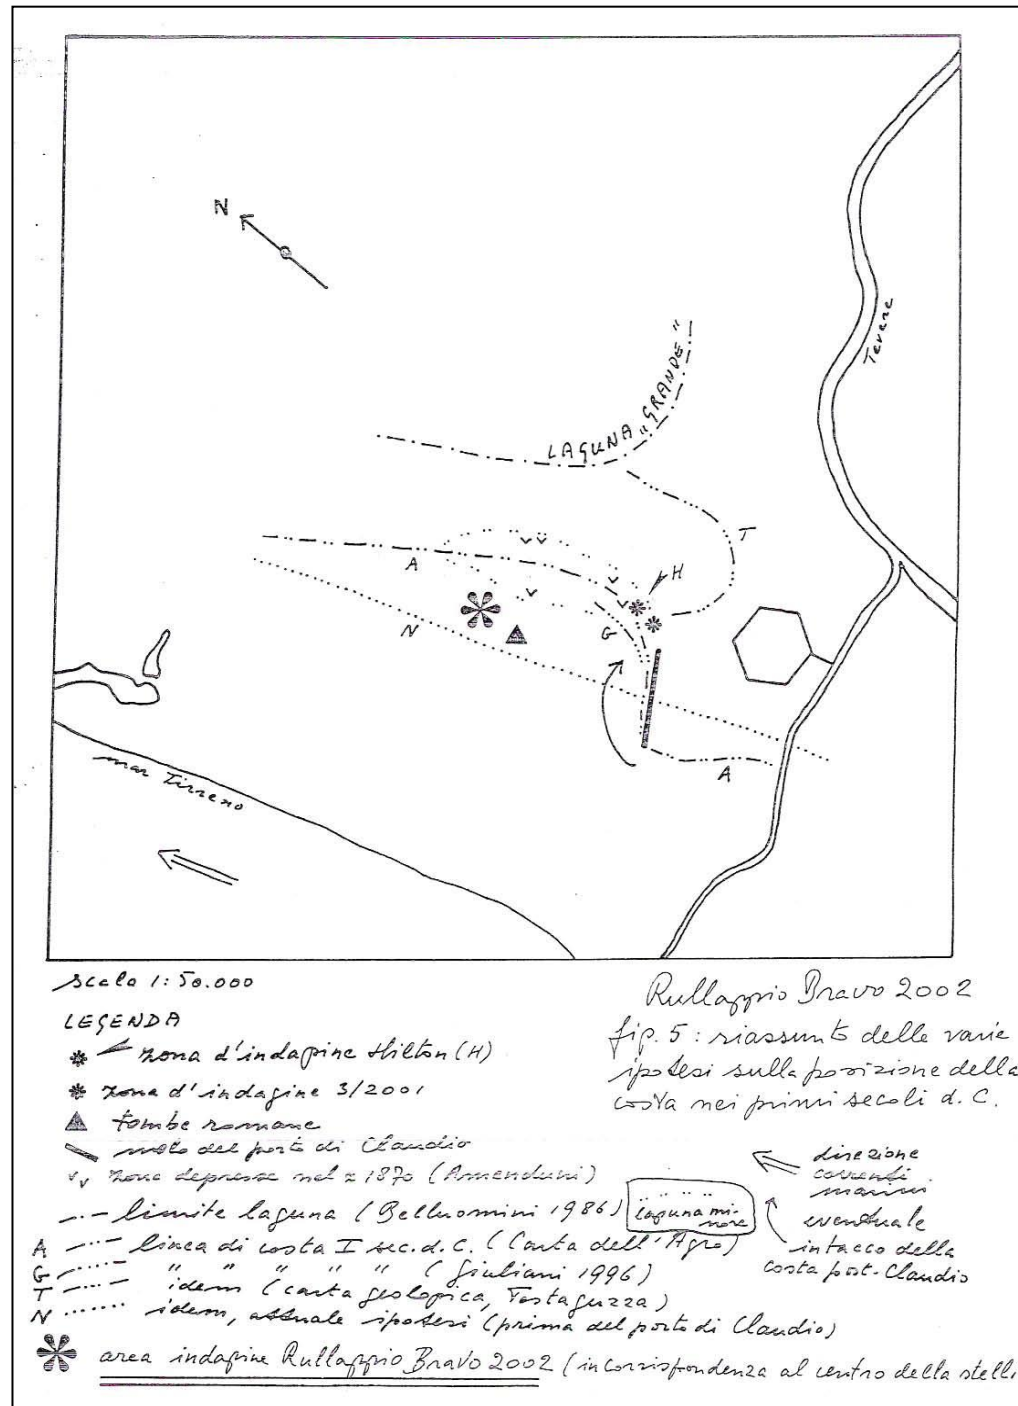 N
Tevere
LAGUNA "GRANDE"
T
A
H
G
N
A
mar Tirreno
scala 1:50.000
LEGENDA
zona d'indagine Hilton (H)
zona d'indagine 3/2001
tombe romane
molo del porto di Claudio
v v zone depresse nel ≈ 1870 (Amenduni)
limite laguna (Belluomini 1986) laguna minore
A linea di costa I sec. d. C. (Carta dell'Agro)
G " " " " " (Giuliani 1996)
T idem (carta geologica, Testaguzza)
N idem, attuale ipotesi (prima del porto di Claudio)
area indagine Rullaggio Bravo 2002 (in corrispondenza al centro della
Rullaggio Bravo 2002
fig. 5: riassunto delle varie
ipotesi sulla posizione della
costa nei primi secoli d. C.
direzione
correnti
marini
eventuale
intacco della
costa post-Claudio